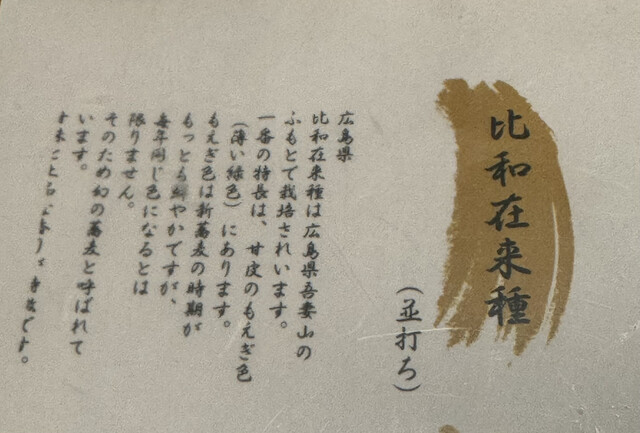 比和在来種
（並打ち）
広島県
比和在来種は広島県吾妻山の
ふもとで栽培されいます。
一番の特長は、甘皮のもえぎ色
（薄い緑色）にあります。
もえぎ色は新蕎麦の時期が
もっとも鮮やかですが、
毎年同じ色になるとは
限りません。
そのため幻の蕎麦と呼ばれて
います。